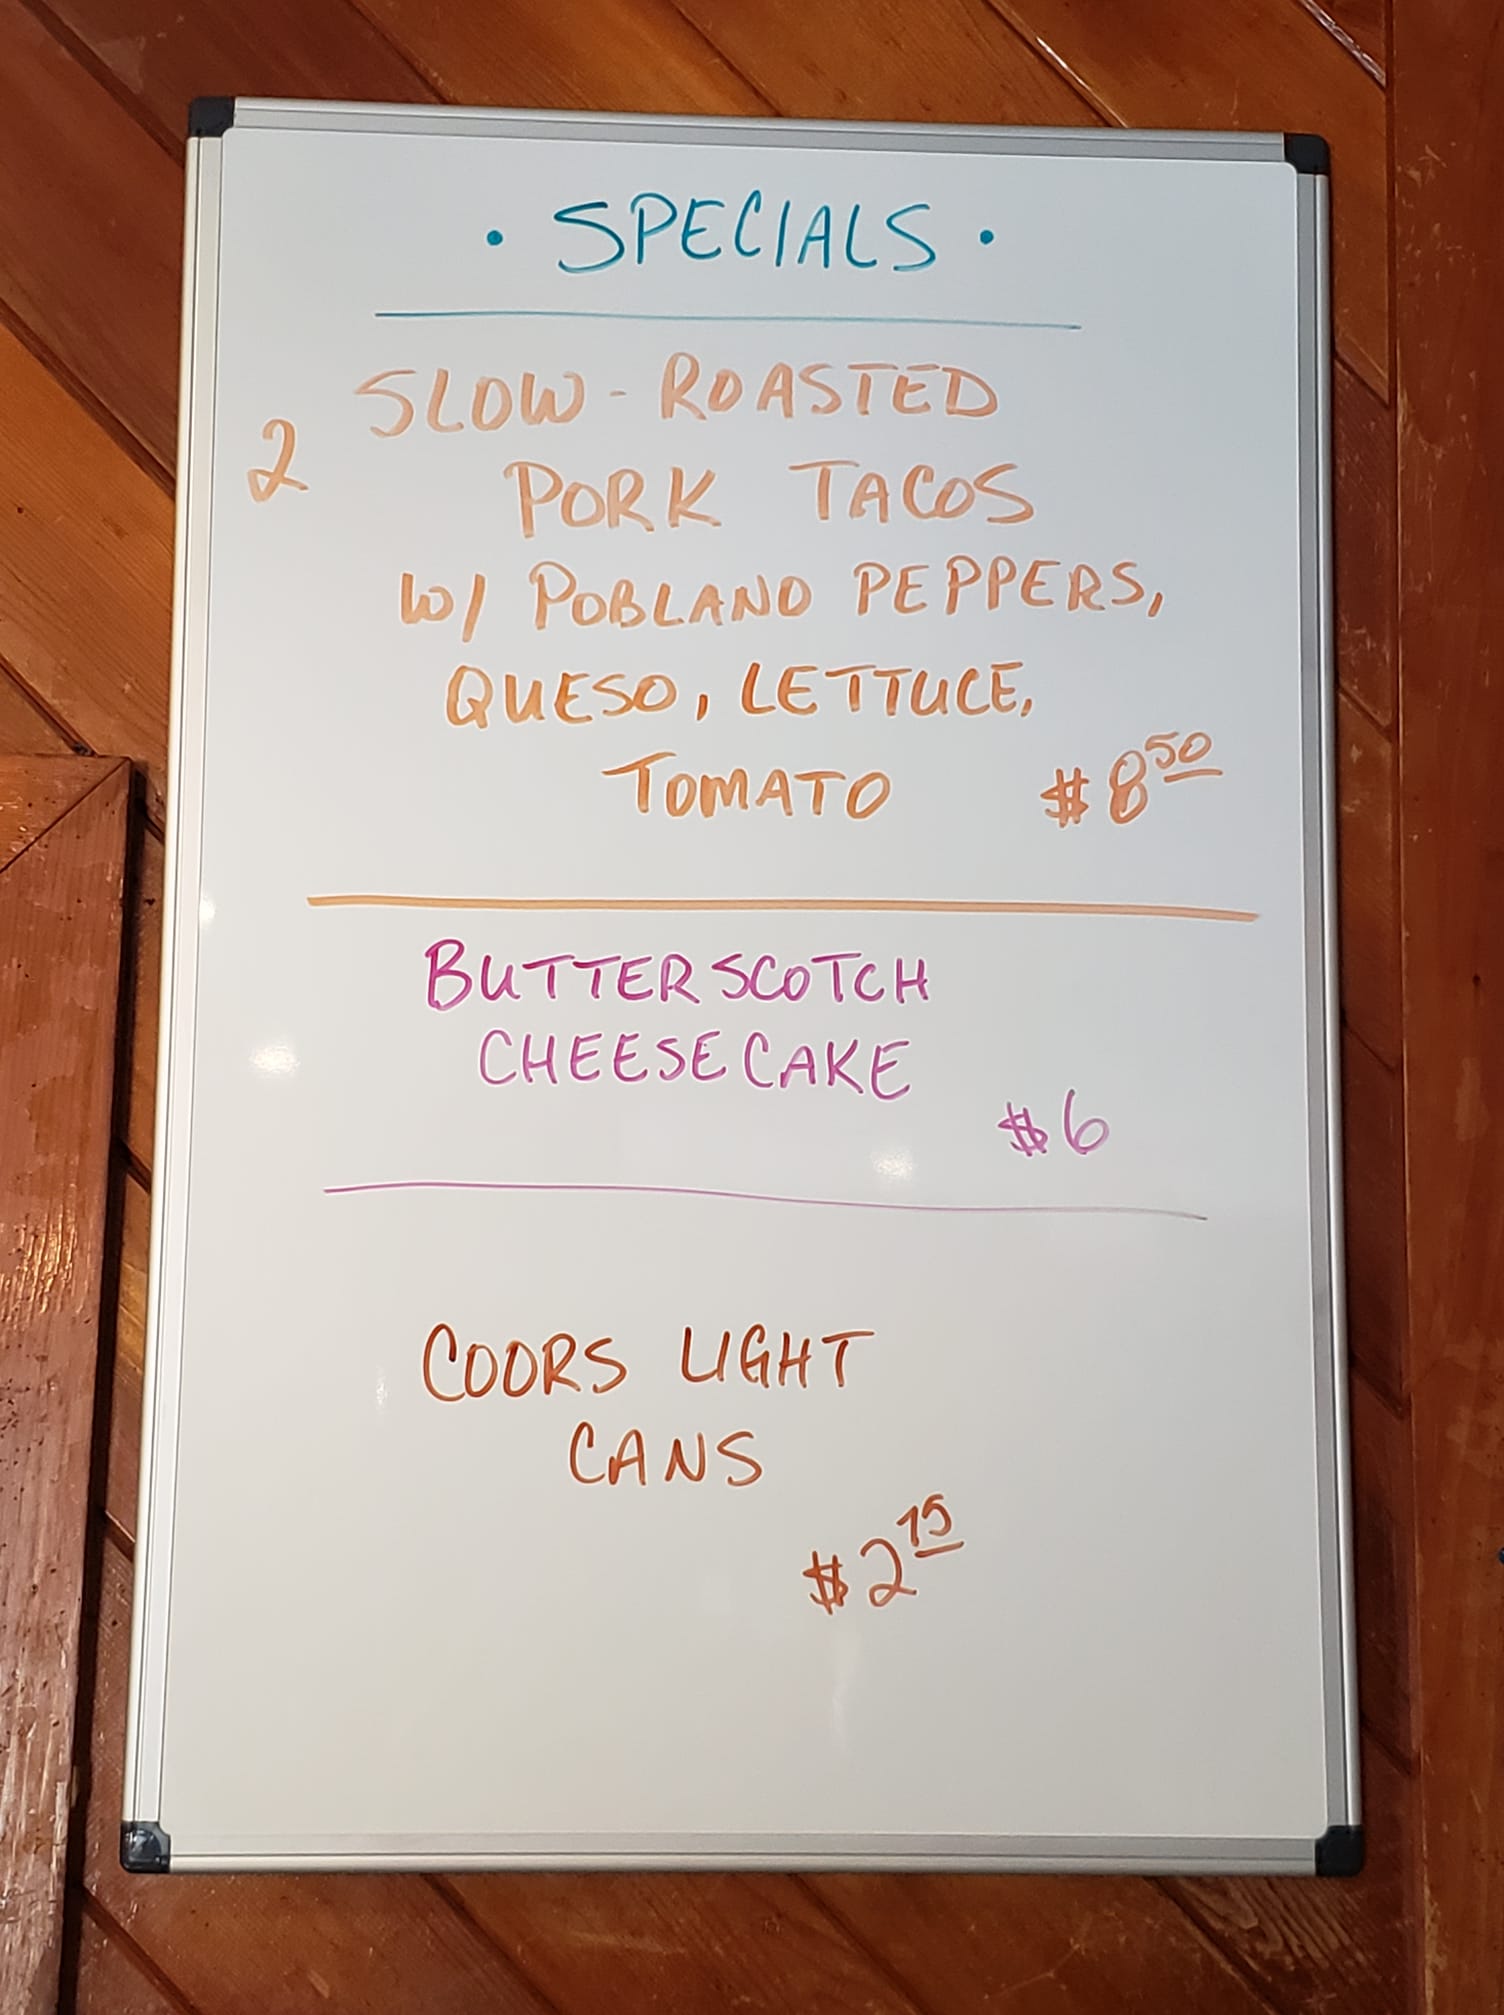 • SPECIALS •
SLOW-ROASTED
2 PORK TACOS
W/ POBLANO PEPPERS,
QUESO, LETTUCE,
TOMATO $8 50
BUTTERSCOTCH
CHEESECAKE
$6
COORS LIGHT
CANS
$2 75